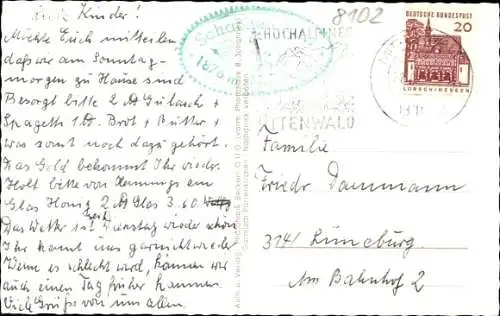 Liebe Kinder!
Möchte Euch mitteilen
daß wir am Sonntag-
morgen zu Hause sind
Besorgt bitte 2 Gulasch +
Spagetti 1 Brot + Butter +
was sonst noch dazu gehört.
Das Geld bekommt Ihr wieder.
Holt bitte von Hennings ein
Glas Honig 2 Glas 3.60.
Das Wetter ist seit Dienstag wieder schön
Ihr kennt uns garnicht wieder
Wenn es schlecht wird, können wir
auch einen Tag früher kommen.
Viele Grüße von uns allen.
1876 m
8102
HOCHALPINES
MITTENWALD
DEUTSCHE BUNDESPOST
20
LORSCH/HESSEN
Familie
Friedr Dammann
314 Lüneburg
Am Bahnhof 2